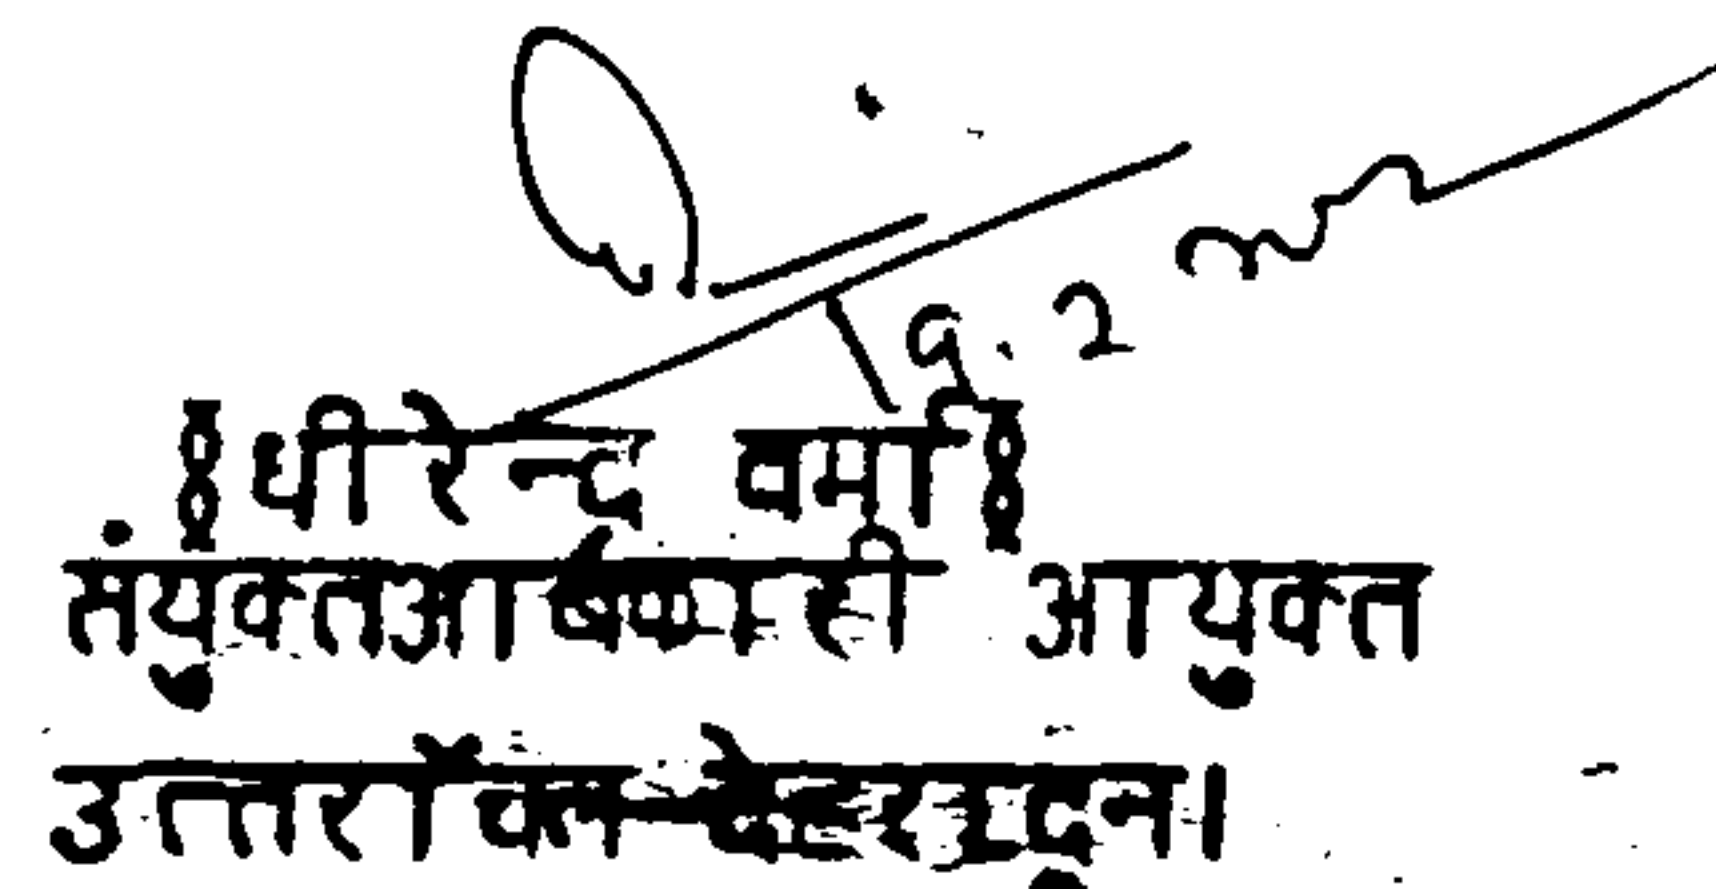 १धीरेन्द्र वर्मा१
संयुक्तआबकारी आयुक्त
उत्तरॉचल देहरादून।